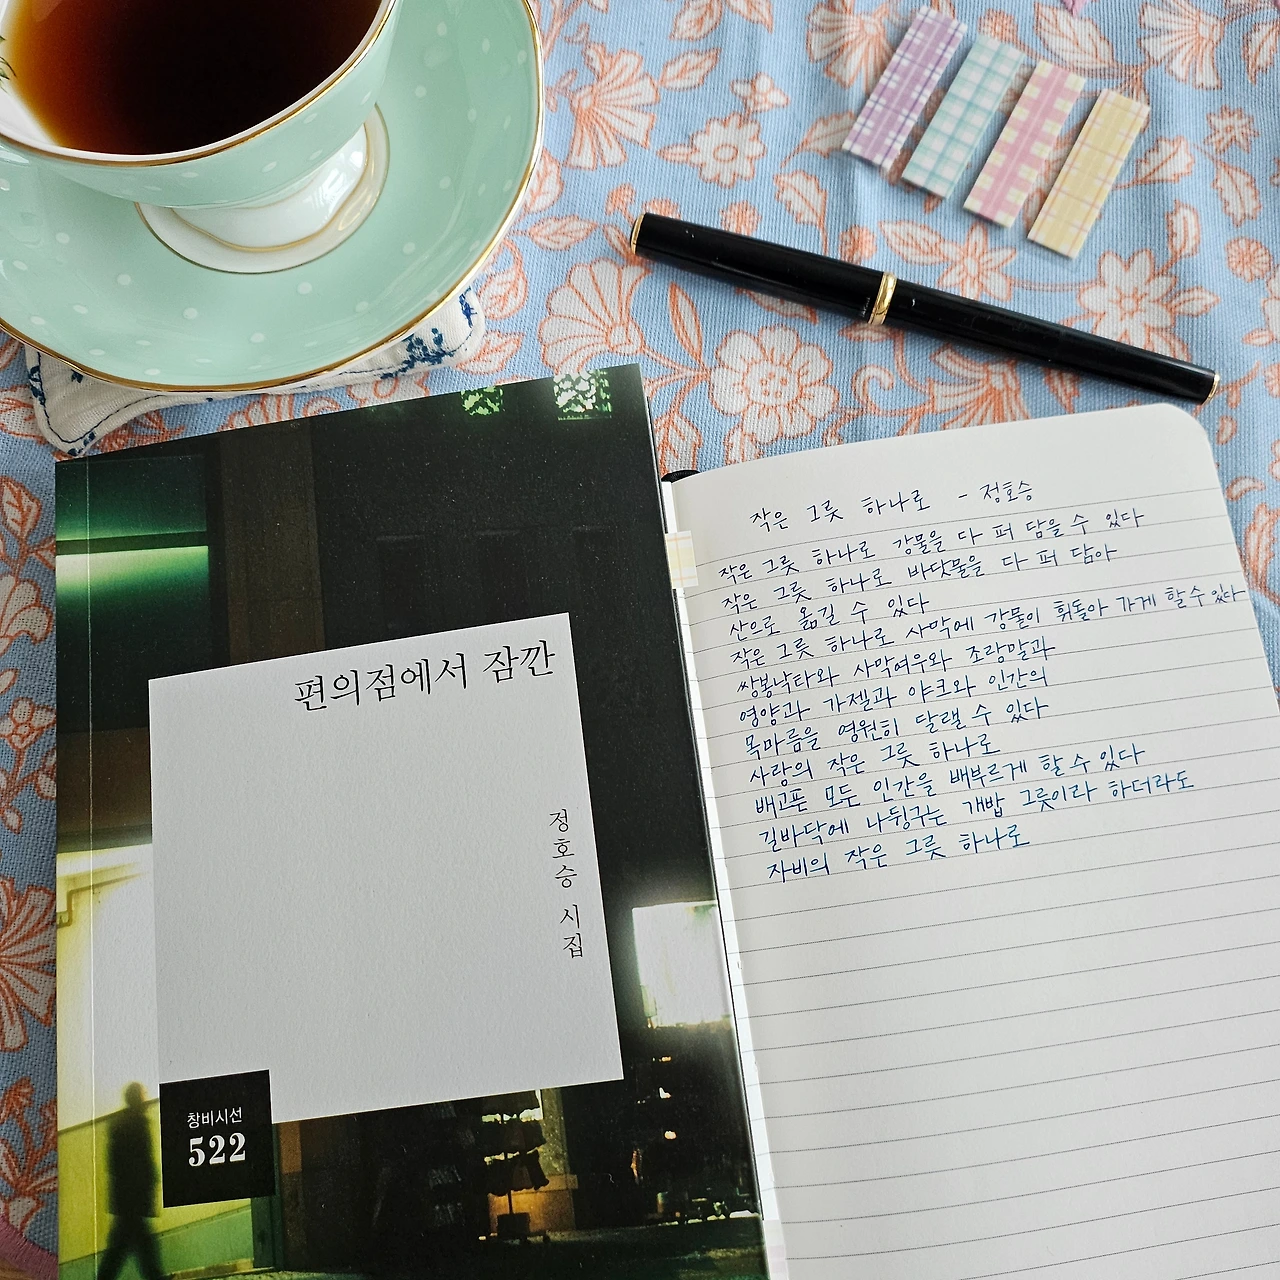 편의점에서 잠깐
정호승 시집
창비시선
522
작은 그릇 하나로 - 정호승
작은 그릇 하나로 강물을 다 퍼 담을 수 있다
작은 그릇 하나로 바닷물을 다 퍼 담아
산으로 옮길 수 있다
작은 그릇 하나로 사막에 강물이 휘돌아 가게 할 수 있다
쌍봉낙타와 사막여우와 조랑말과
영양과 가젤과 야크와 인간의
목마름을 영원히 달랠 수 있다
사랑의 작은 그릇 하나로
배고픈 모든 인간을 배부르게 할 수 있다
길바닥에 나뒹구는 개밥 그릇이라 하더라도
자비의 작은 그릇 하나로